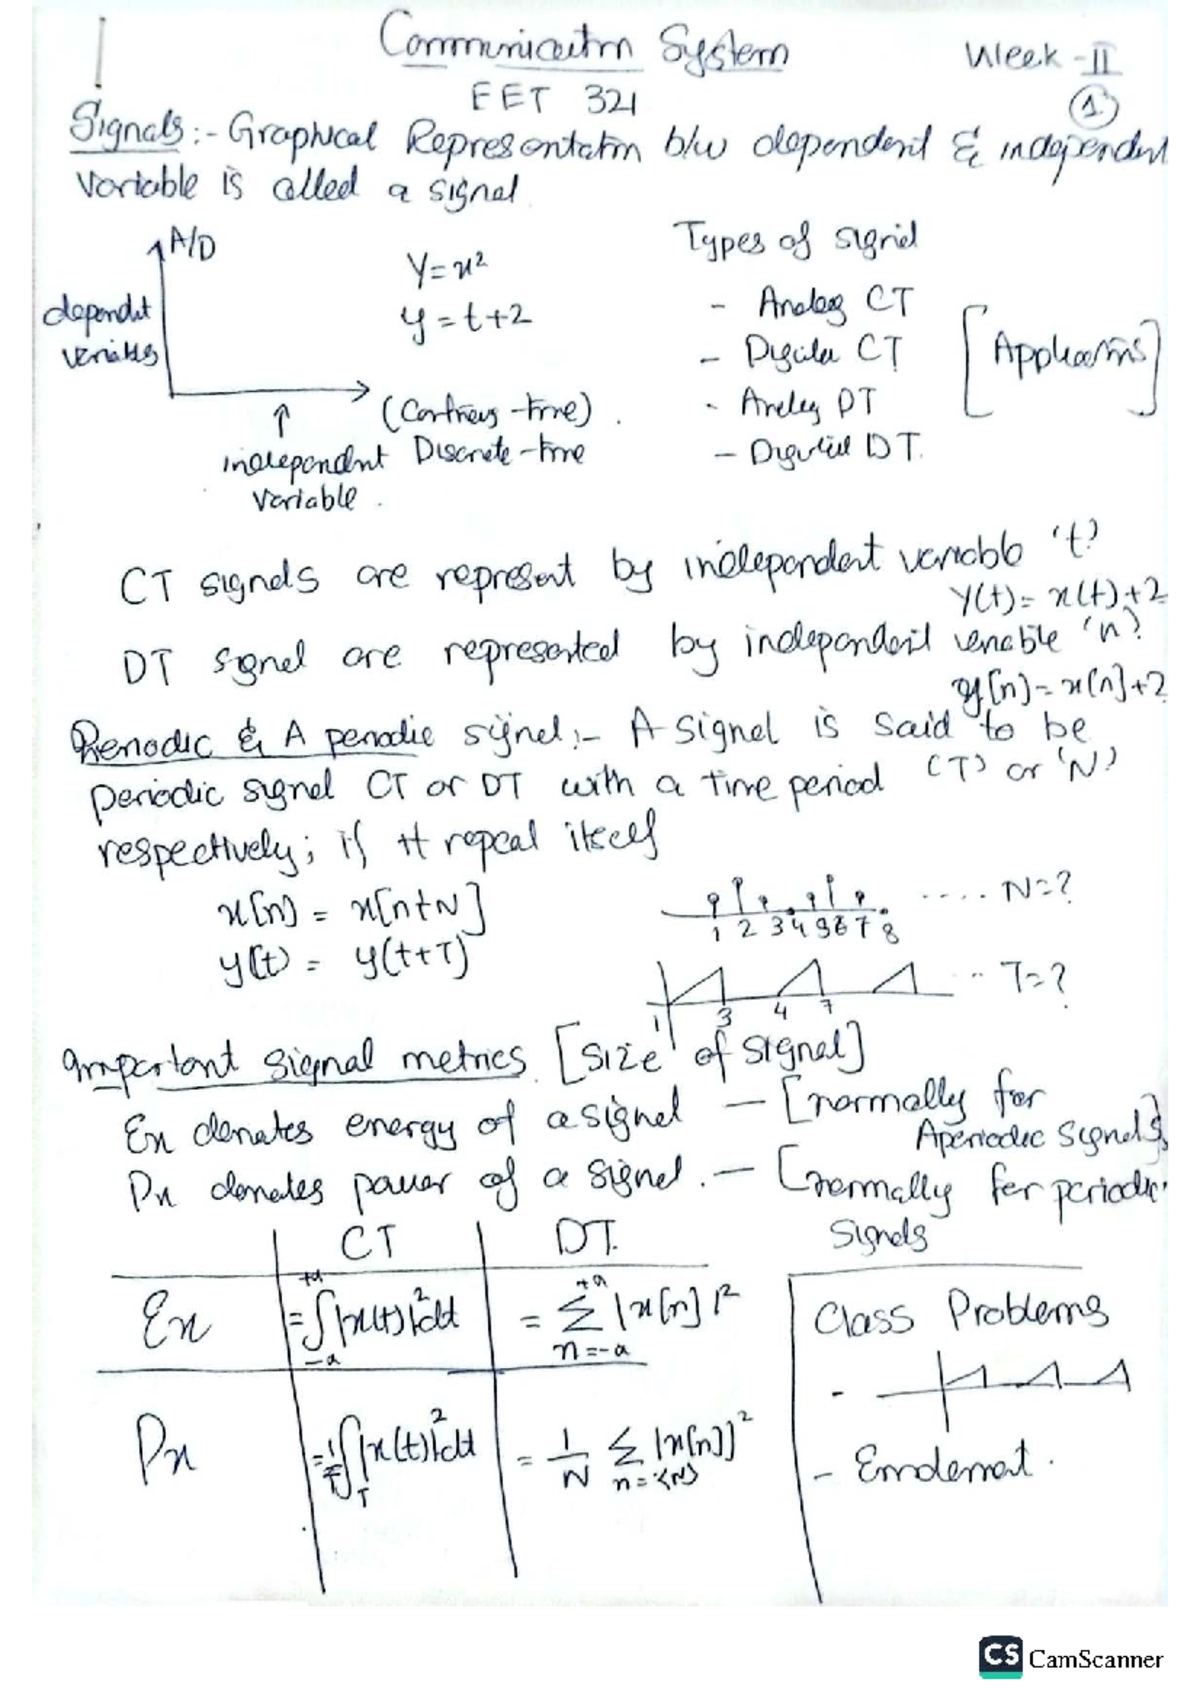 Communication System
Week - II
EET 321
1
Signals :- Graphical Representation b/w dependent & independent
variable is called a signal
A/D
dependent
variables
Y = x²
y = t+2
(Continous - time)
Discrete - time
independent
variable
Types of signal
- Analog CT
- Digital CT
- Analog DT
- Digital DT.
[Applications]
CT signals are represent by independent variable 't'
y(t) = x(t)+2
DT signal are represented by independent variable 'n'
y[n] = x[n]+2
Periodic & A periodic signal :- A signal is said to be
periodic signal CT or DT with a time period (T) or 'N'
respectively; if it repeat itself
x[n] = x[n+N]
1 2 3 4 5 6 7 8 .... N=?
y(t) = y(t+T)
1 3 4 7 .. T=?
Important signal metrics [Size of signal]
Ex denates energy of a signal — [normally for
Aperiodic signals]
Px denates power of a signal. — [normally for periodic
signals
CT DT.
Ex = ∫|x(t)|²dt = Σ|x[n]|²
+a -a +a n=-a
Px = 1/T ∫|x(t)|²dt = 1/N Σ |x[n]|²
T n=<N>
Class Problems
-
- 
CS CamScanner